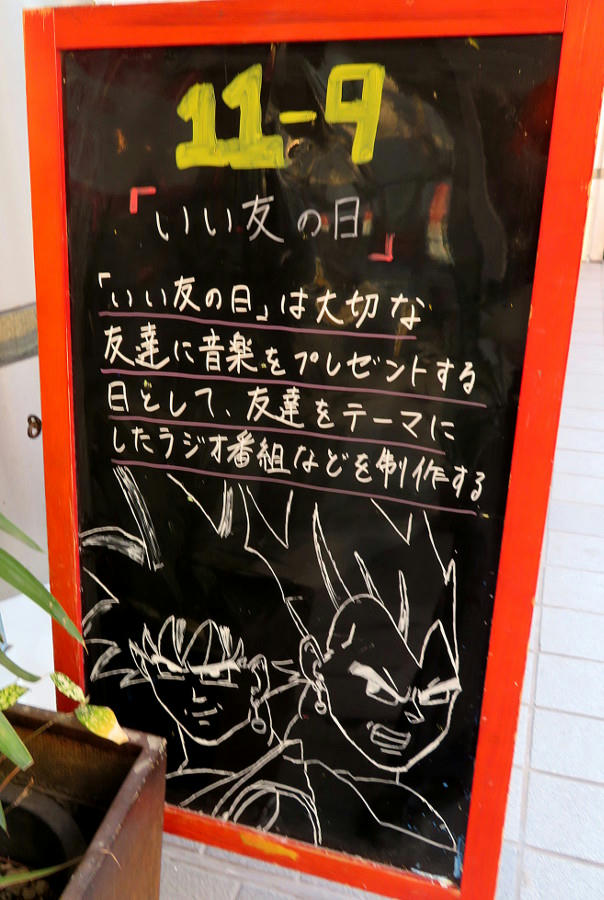 11-9
「いい友の日」
「いい友の日」は大切な
友達に音楽をプレゼントする
日として、友達をテーマに
したラジオ番組などを制作する